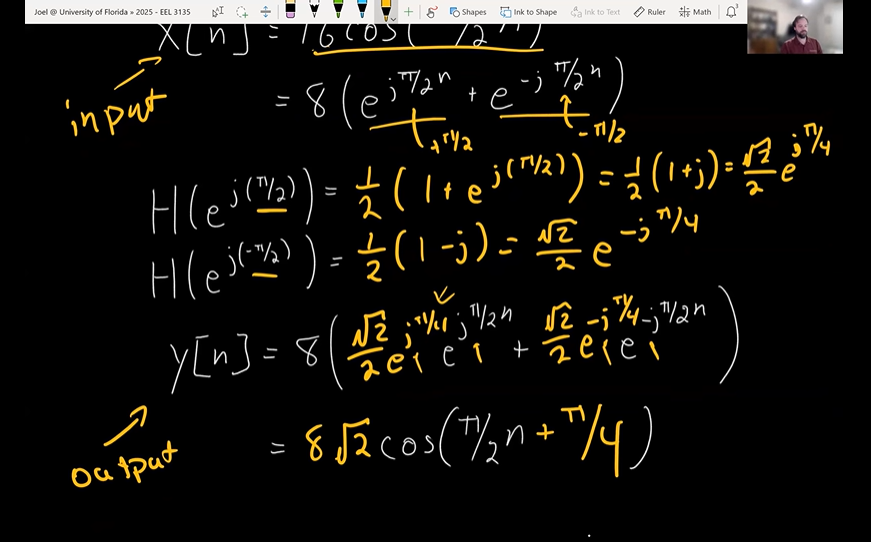 Joel @ University of Florida » 2025 - EEL 3135
Shapes
Ink to Shape
Ink to Text
Ruler
Math
x[n] = 16 cos(π/2 n)
input
= 8 ( e^{jπ/2 n} + e^{-jπ/2 n} )
+π/2 -π/2
H(e^{j(π/2)}) = 1/2 ( 1 + e^{j(π/2)} ) = 1/2 (1+j) = √2/2 e^{jπ/4}
H(e^{j(-π/2)}) = 1/2 (1-j) = √2/2 e^{-jπ/4}
y[n] = 8 ( √2/2 e^{jπ/4} e^{jπ/2 n} + √2/2 e^{-jπ/4} e^{-jπ/2 n} )
= 8√2 cos(π/2 n + π/4)
output